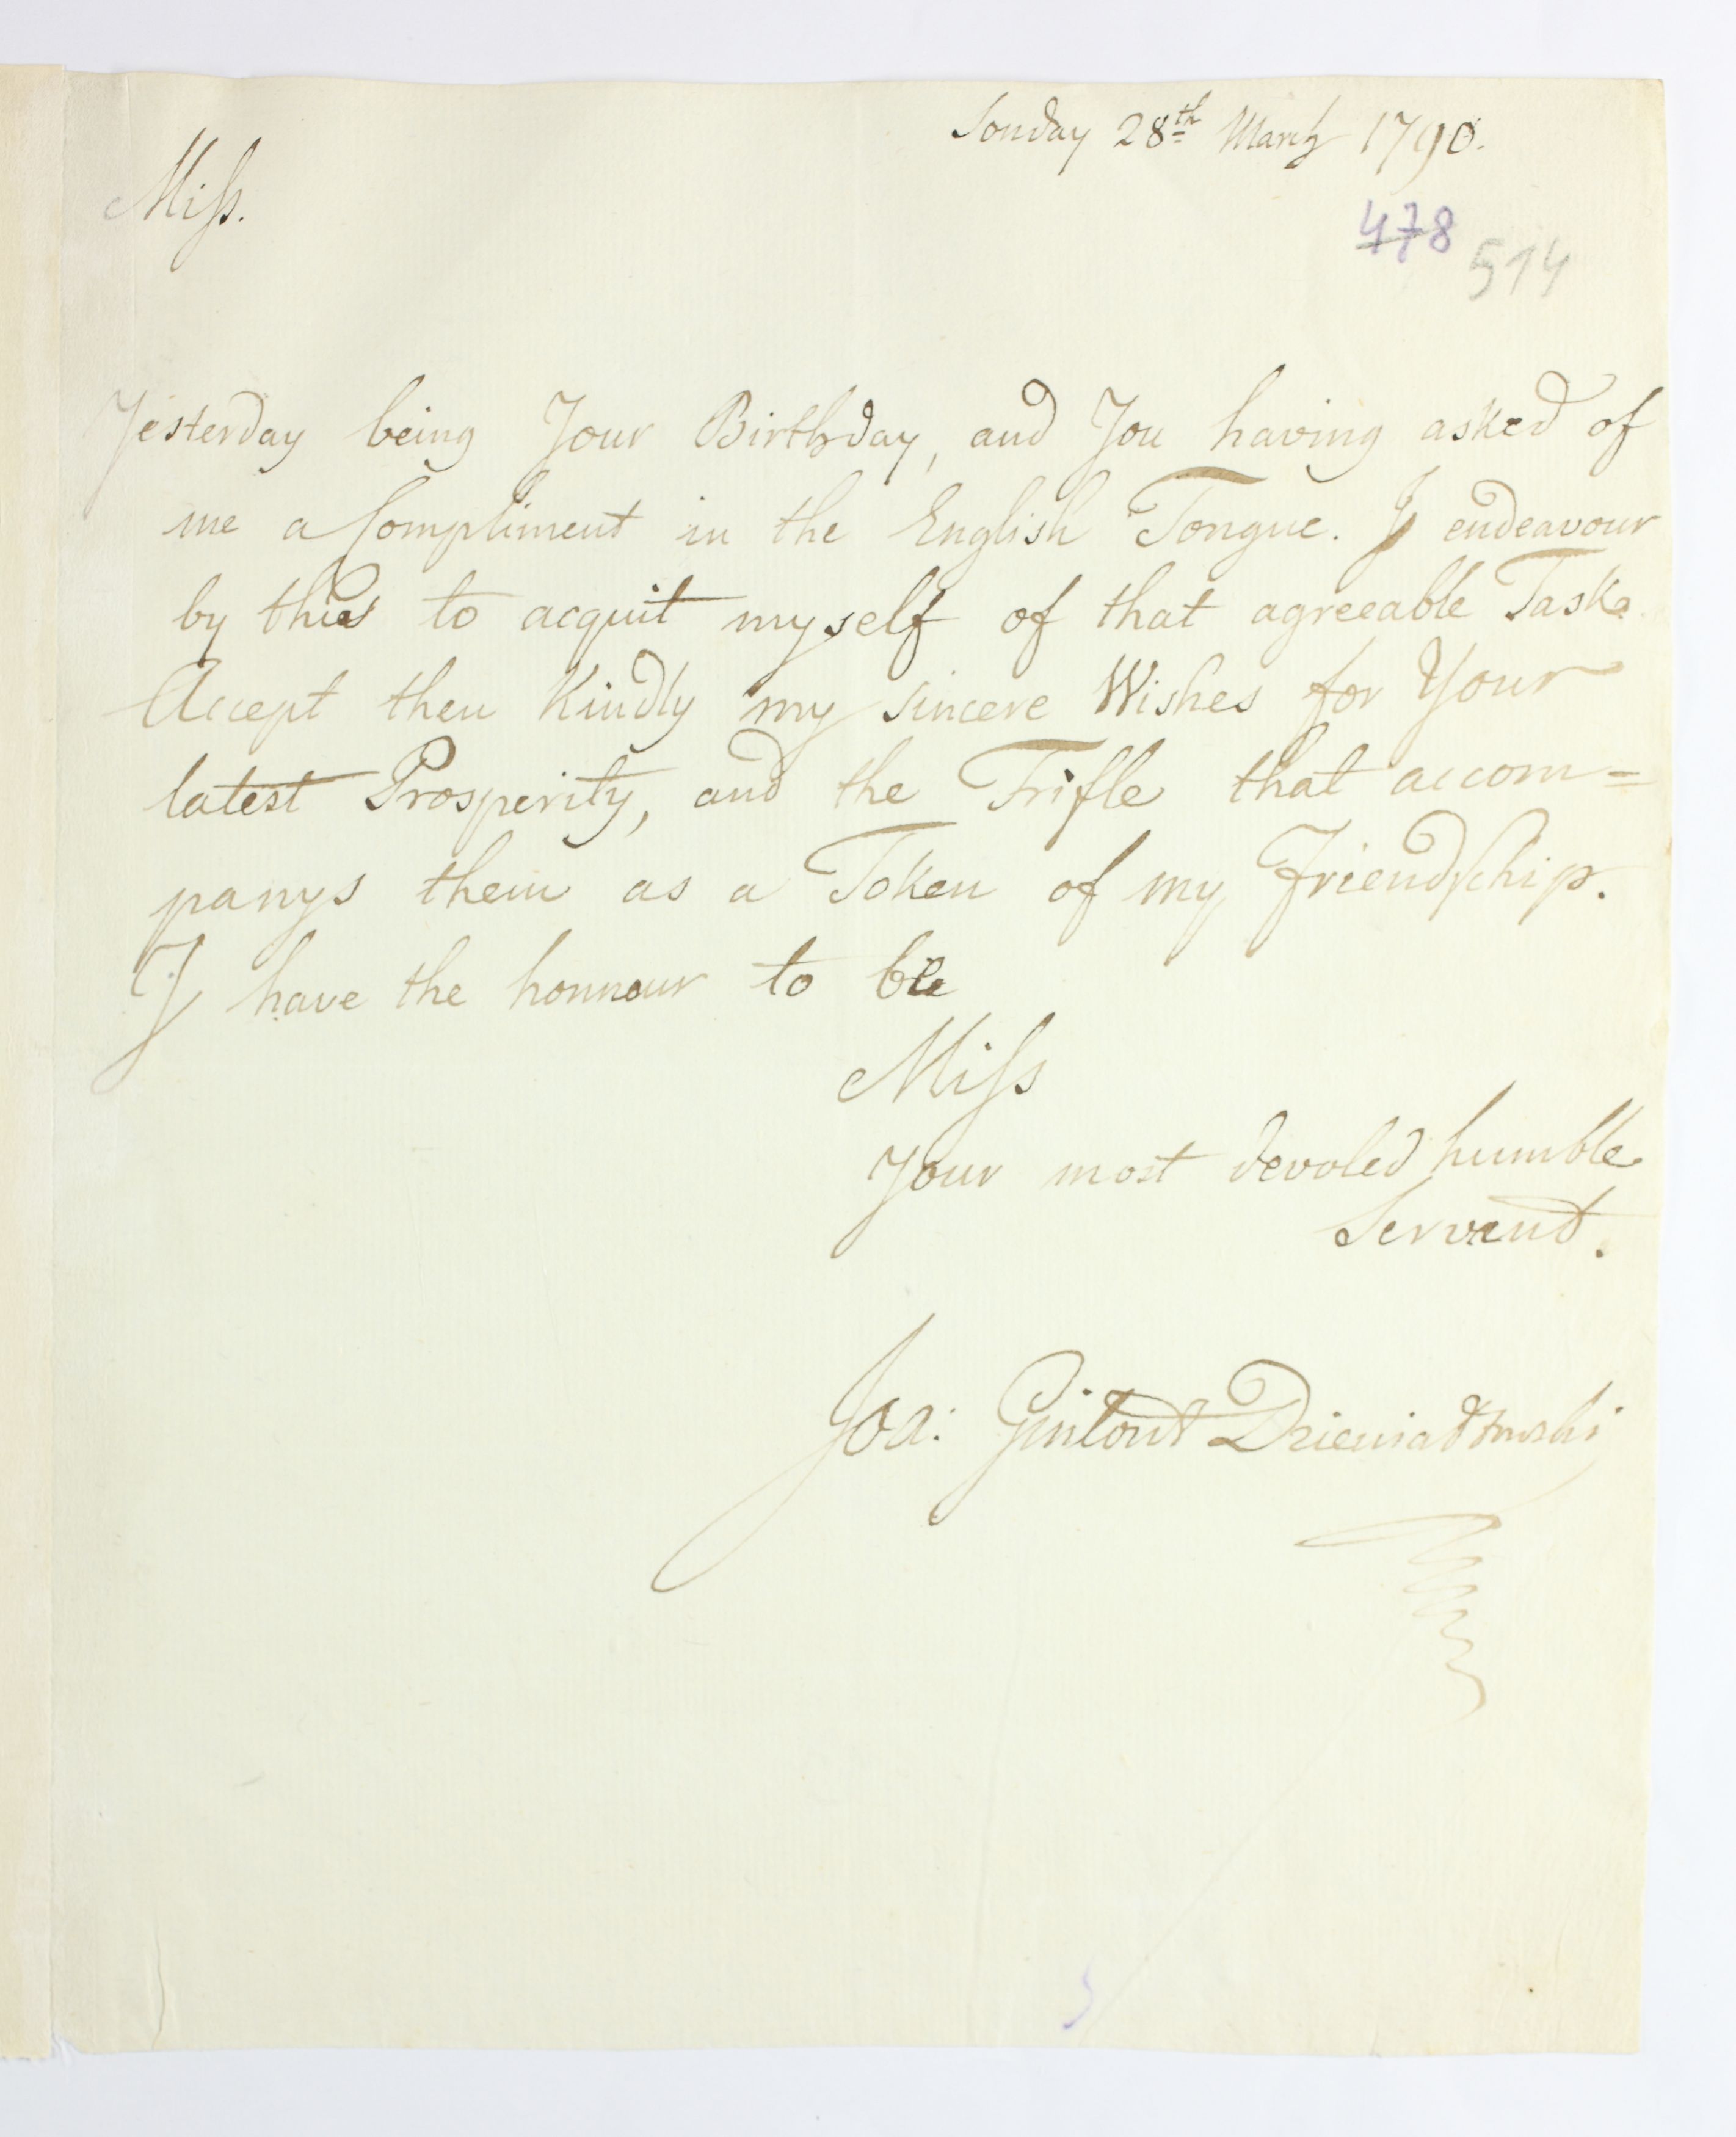 Sonday 28th March 1790.
Miss.
478 514
Yesterday being Your Birthday, and You having asked of
me a Compliment in the English Tongue. I endeavour
by this to acquit myself of that agreeable Task.
Accept then Kindly my sincere Wishes for Your
latest Prosperity, and the Trifle that accom=
panys them as a Token of my Friendschip.
I have the honnour to be
Miss
Your most devoted humble
Servend.
Joa: Gintowt